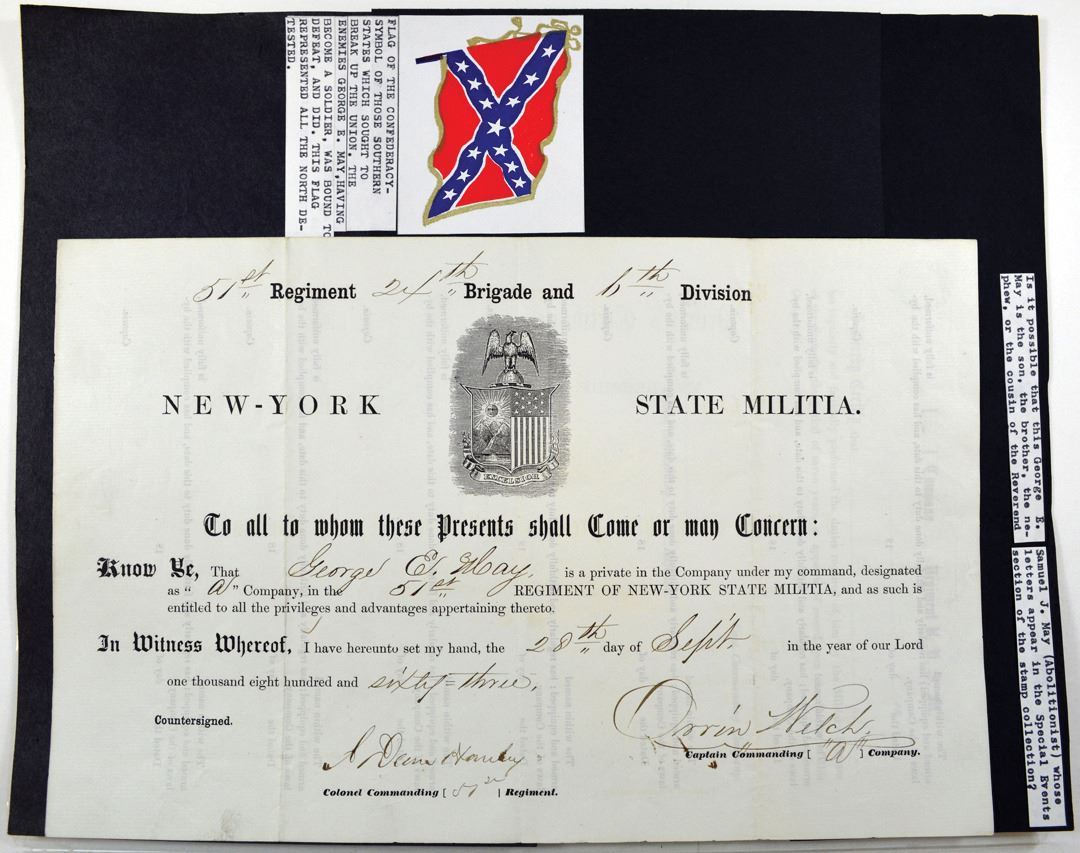 FLAG OF THE CONFEDERACY-
SYMBOL OF THOSE SOUTHERN
STATES WHICH SOUGHT TO
BREAK UP THE UNION. THE
ENEMIES GEORGE E. MAY, HAVING
BECOME A SOLDIER, WAS BOUND TO
DEFEAT, AND DID. THIS FLAG
REPRESENTED ALL THE NORTH DE-
TESTED.
51st Regiment 24th Brigade and 6th Division
NEW-YORK STATE MILITIA.
EXCELSIOR
To all to whom these Presents shall Come or may Concern:
Know Ye, That George E. May, is a private in the Company under my command, designated
as "A" Company, in the 51st REGIMENT OF NEW-YORK STATE MILITIA, and as such is
entitled to all the privileges and advantages appertaining thereto.
In Witness Whereof, I have hereunto set my hand, the 28th day of Sept. in the year of our Lord
one thousand eight hundred and sixty-three.
Countersigned.
Orrin Welch,
Captain Commanding [ "A" ] Company.
Colonel Commanding [ 51st ] Regiment.
Is it possible that this George E.
May is the son, the brother, the ne-
phew, or the cousin of the Reverend
Samuel J. May (Abolitionist) whose
letters appear in the Special Events
section of the stamp collection?